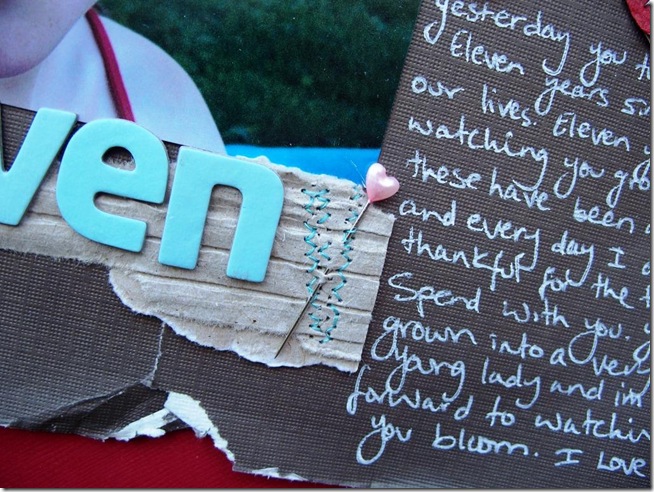 ven
yesterday you t
Eleven years si
our lives. Eleven
watching you gro
these have been
and every day I a
thankful for the t
Spend with you.
grown into a ver
yang lady and im
forward to watchin
you bloom. I Love